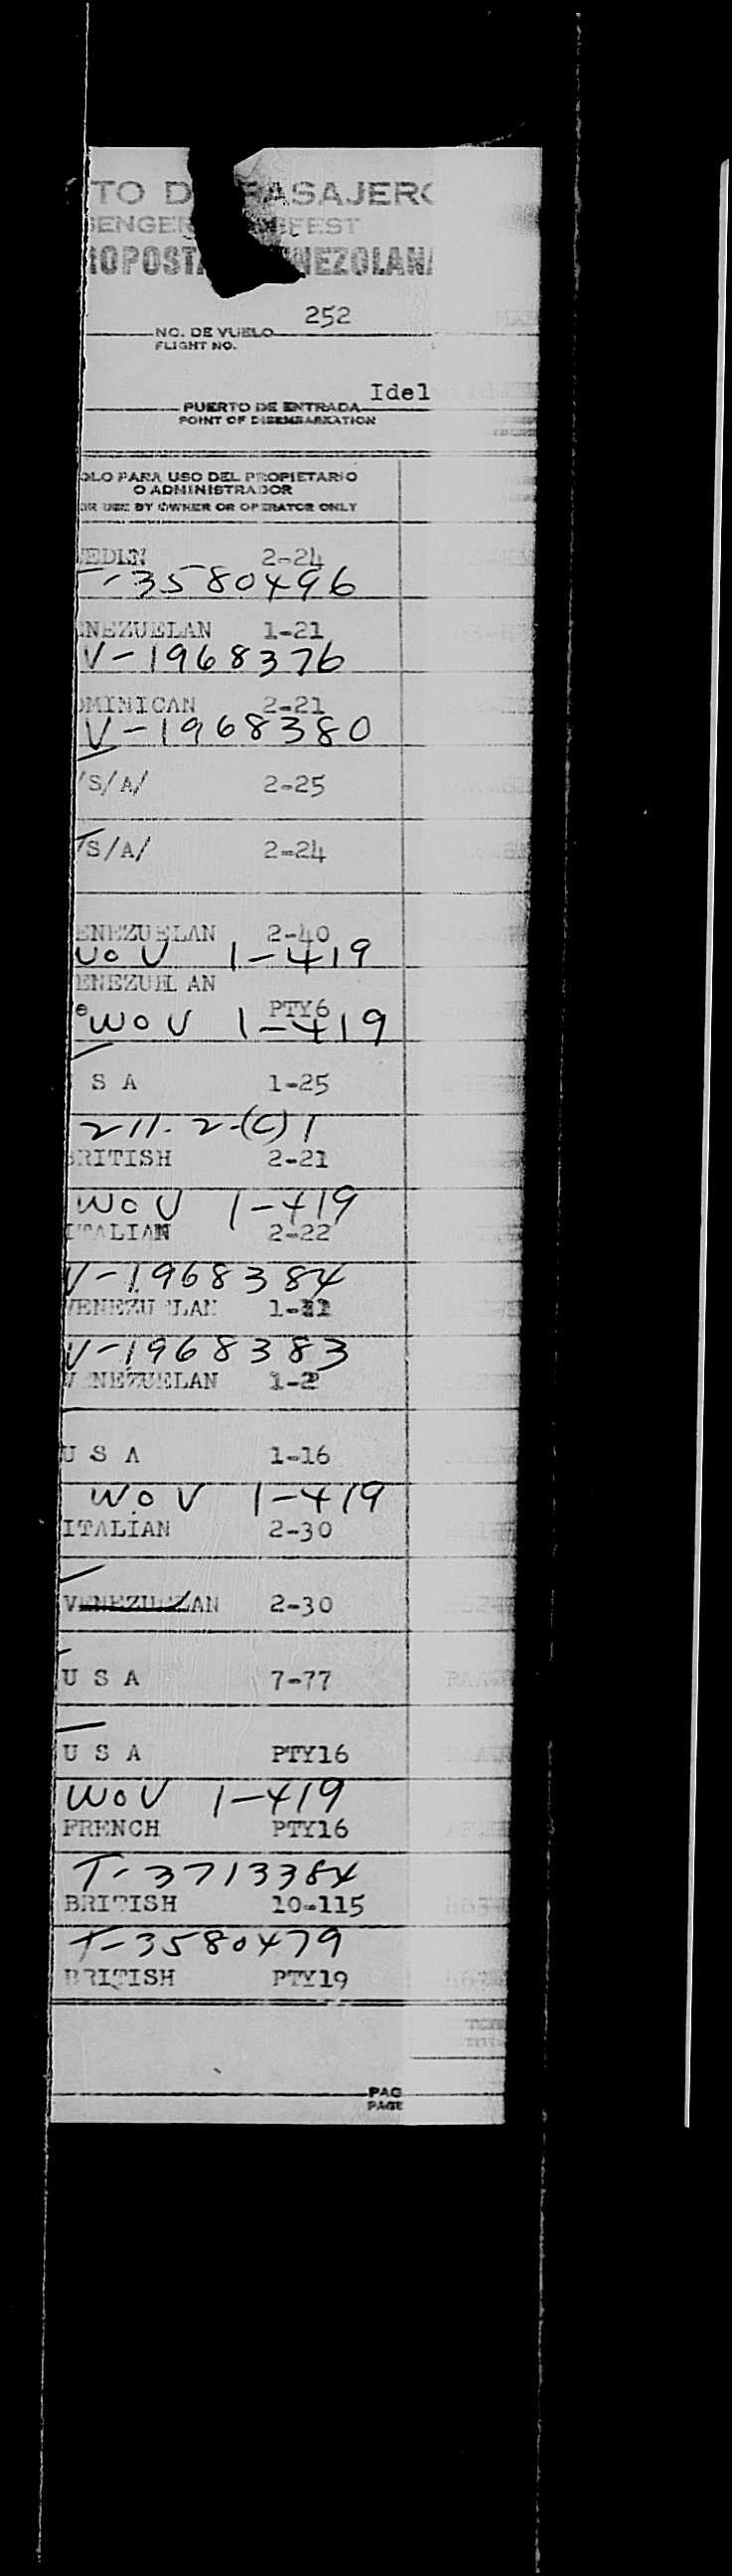 TO D PASAJERO
SENGER MANIFEST
ROPOSTA VENEZOLANA
252
NO. DE VUELO
FLIGHT NO.
Idel
PUERTO DE ENTRADA
POINT OF DISEMBARKATION
OLO PARA USO DEL PROPIETARIO
O ADMINISTRADOR
OR USE BY OWNER OR OPERATOR ONLY
WEDEN 2-24
T-3580496
ENEZUELAN 1-21
V-1968376
OMINICAN 2-21
V-1968380
/S/A/ 2-25
/S/A/ 2-24
ENEZUELAN 2-40
WOV 1-419
ENEZUELAN
PTY6
WOV 1-419
S A 1-25
211.2-(C)1
BRITISH 2-21
WOV 1-419
ITALIAN 2-22
V-1968384
VENEZUELAN 1-11
V-1968383
VENEZUELAN 1-2
U S A 1-16
WOV 1-419
ITALIAN 2-30
VENEZUELAN 2-30
U S A 7-77
U S A PTY16
WOV 1-419
FRENCH PTY16
T-3713384
BRITISH 10-115
T-3580479
BRITISH PTY19
PAG
PAGE